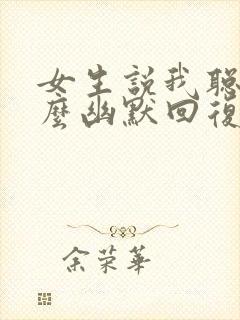 女生説我聰
麼幽默回復
余荣華